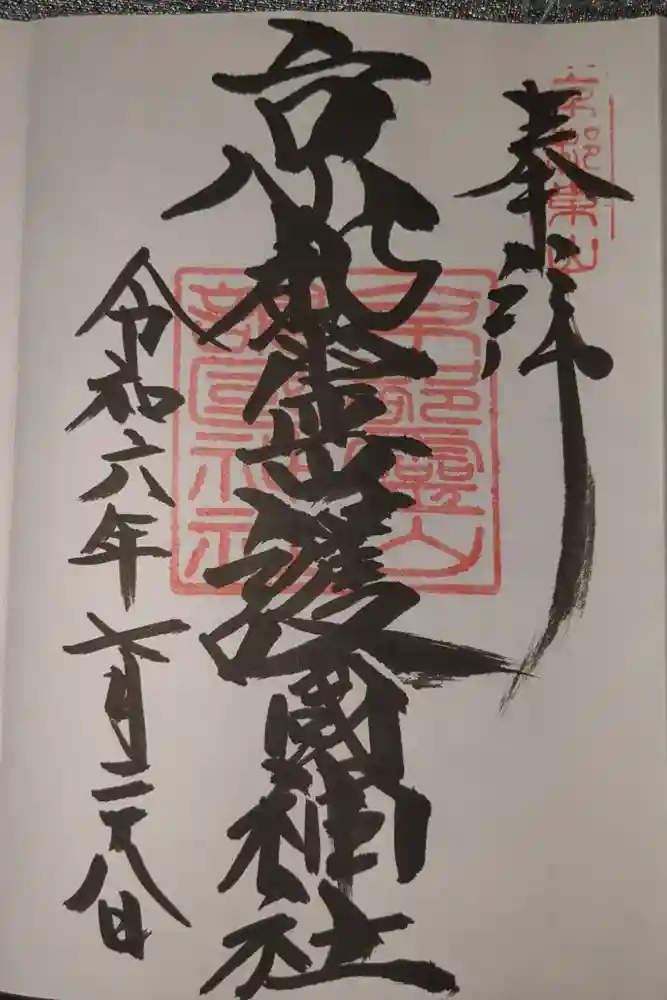 京都東山
奉拝
京都霊山護國神社
京都霊山護国神社
令和六年六月二十八日